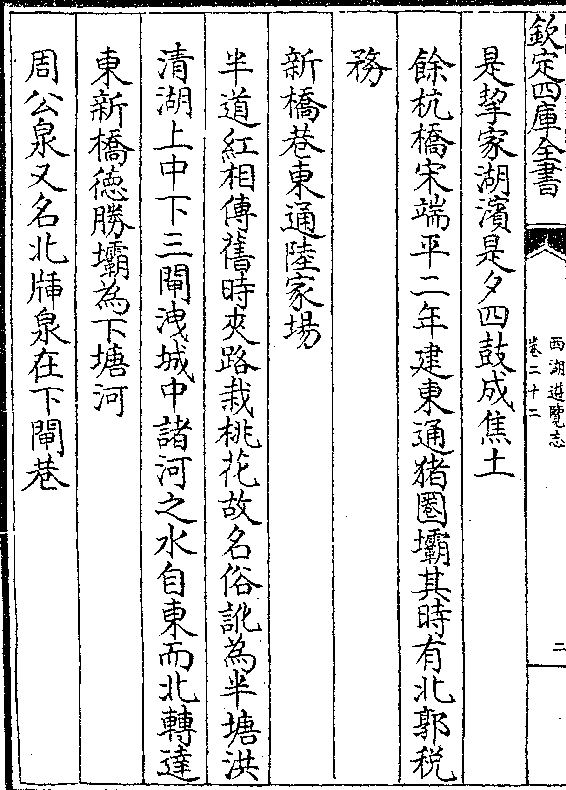 欽定四庫全書
西湖遊覽志
卷二十二
二
是挈家湖濱是夕四鼓成焦土
餘杭橋宋端平二年建東通猪圈壩其時有北郭稅
務
新橋巷東通陸家場
半道紅相傳舊時夾路栽桃花故名俗訛為半塘洪
清湖上中下三閘洩城中諸河之水自東而北轉達
東新橋德勝壩為下塘河
周公泉又名北㡳泉在下閘巷